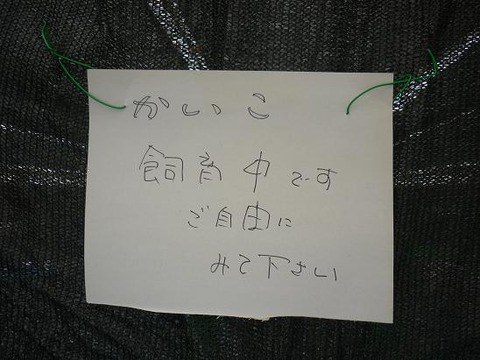 かいこ
飼育中です
ご自由に
みて下さい